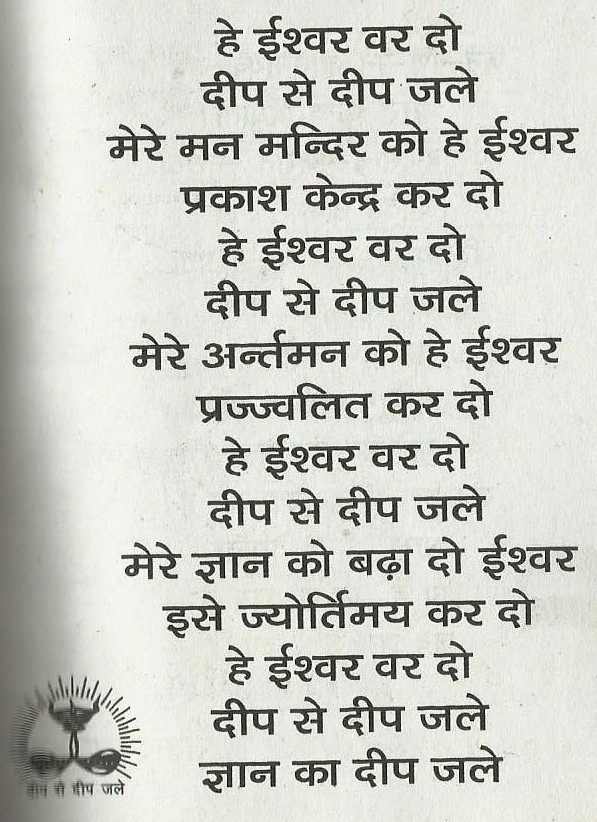 हे ईश्वर वर दो
दीप से दीप जले
मेरे मन मन्दिर को हे ईश्वर
प्रकाश केन्द्र कर दो
हे ईश्वर वर दो
दीप से दीप जले
मेरे अर्न्तमन को हे ईश्वर
प्रज्ज्वलित कर दो
हे ईश्वर वर दो
दीप से दीप जले
मेरे ज्ञान को बढ़ा दो ईश्वर
इसे ज्योर्तिमय कर दो
हे ईश्वर वर दो
दीप से दीप जले
ज्ञान का दीप जले
दीप से दीप जले